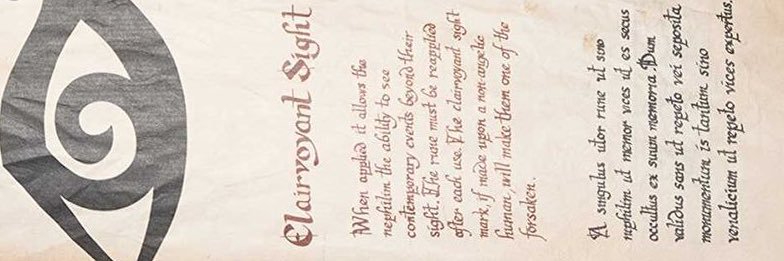 Clairvoyant Sight
When applied it allows the
nephilim the ability to see
contemporary events beyond their
sight. The rune must be reapplied
after each use. The clairvoyant sight
mark, if made upon a non-angelic
human, will make them one of the
forsaken.
A singulus utor rune ut sino
nephilim ut memor vices ut es secus
occultus ex suum memoria. Dum
validus sans ut repeto vei seposita
monumentum is tantum sino
venalicium ut repeto vices expertus.